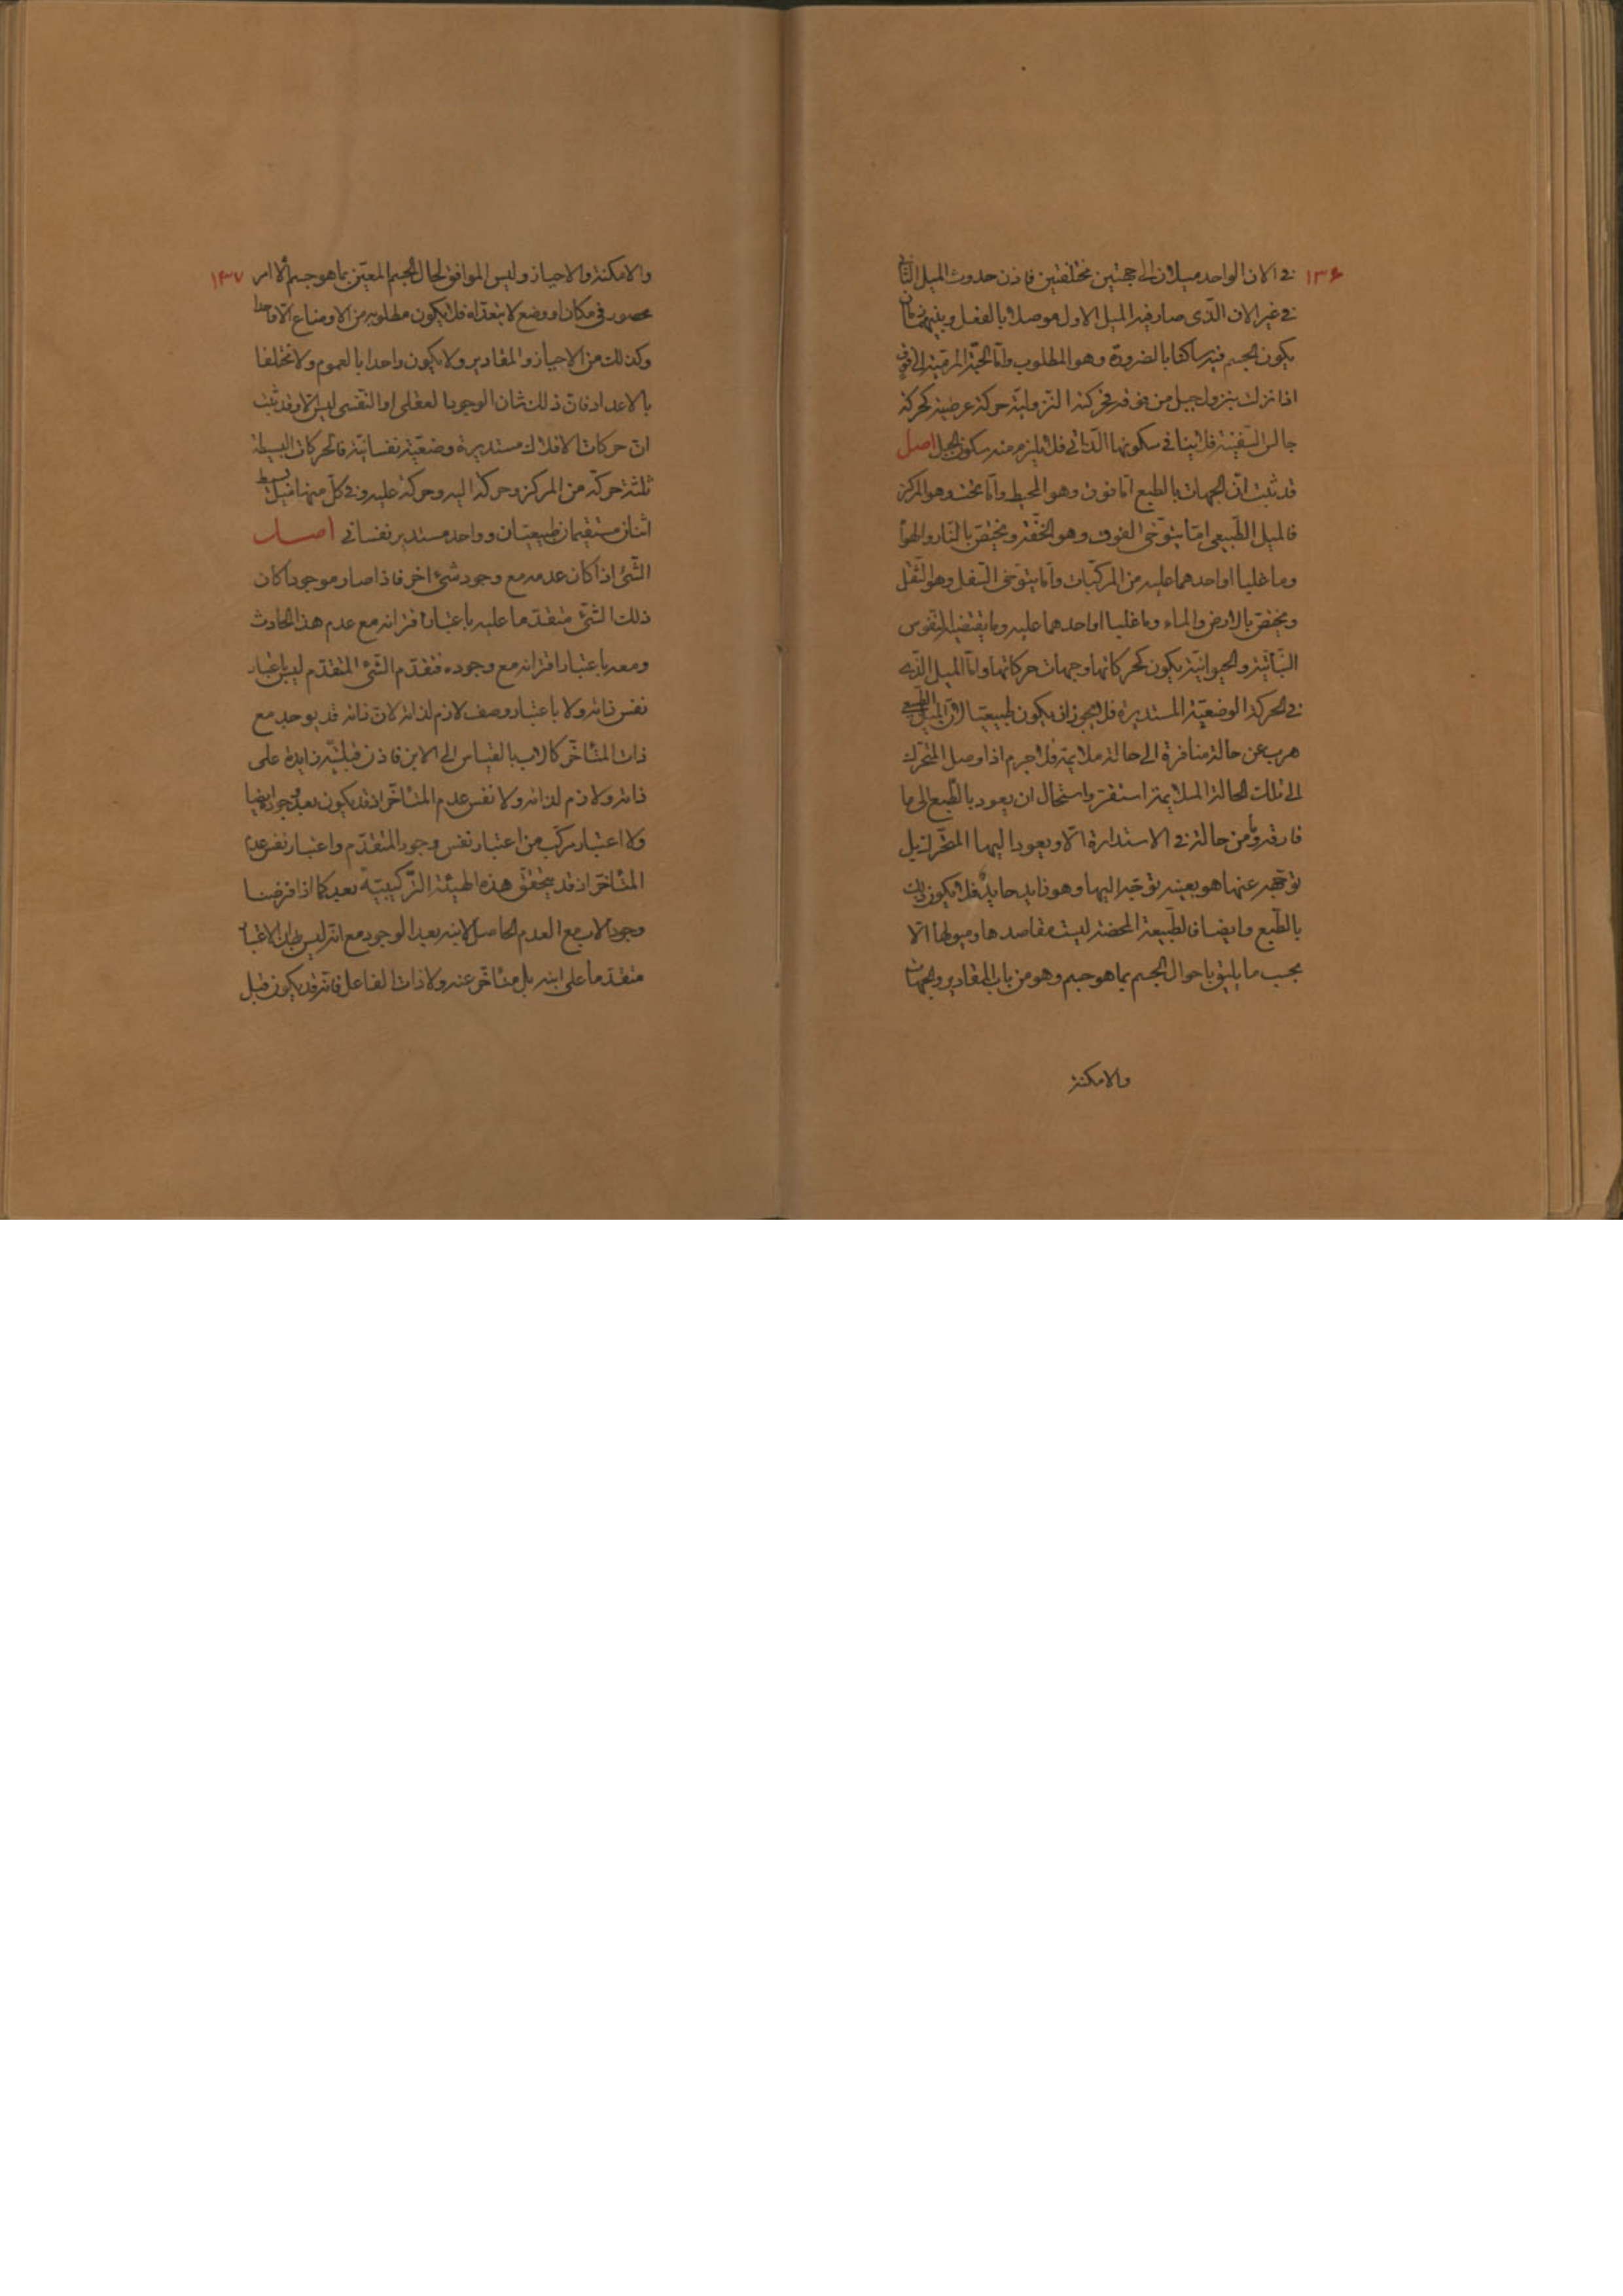 ١٣۶
في الان الواحد ميلان الى جهتين مختلفتين فاذن حدوث الميل الثاني
في غير الان الذى صار فيه الميل الاول موصلا بالفعل وبينهما زمان
يكون الجسم فيه ساكنا بالضرورة وهو المطلوب واما الحبة المرمية الى فوق
اذا نزلت بنزول جبل من فوقه فحركته النزولية حركة عرضية كحركة
جالس السفينة فلا ينافي سكونها الذاتي فلا يلزم منه سكون الجبل اصل
قد ثبت ان الجهات بالطبع اما فوق وهو المحيط واما تحت وهو المركز
فالميل الطبيعى اما يتوخى الفوق وهو الخفة ويختص بالنار والهواء
وما غلبا او احدهما عليه من المركبات واما يتوخى السفل وهو الثقل
ويختص بالارض والماء وما غلبا او احدهما عليه وما يقتضيه النفوس
النباتية والحيوانية يكون كحركاتها وجهات حركاتها واما الميل الذي
في الحركة الوضعية المستديرة فلا يجوز ان يكون طبيعيا لان الميل الطبيعي
هرب عن حالة منافرة الى حالة ملايمة فلا جرم اذا وصل المتحرك
الى تلك الحالة الملايمة استقر واستحال ان يعود بالطبع الى ما
فارقه وما من حالة في الاستدارة الا ويعود اليها المتحرك بل
توجهه عنها هو بعينه توجه اليها وهو ذاته حايد فلا يكون ذلك
بالطبع وايضا فالطبيعة المحضة ليست مقاصدها وميولها الا
بحسب ما يليق باحوال الجسم بما هو جسم وهو من باب المقادير والجهات
والامكنة
١٣٧
والامكنة والاحياز وليس الموافق لحال الجسم المعين بما هو جسم الا امر
محصور في مكان او وضع لا يتعداه فلا يكون مطلوبه من الاوضاع الا واحدا
وكذلك من الاحياز والمقادير ولا يكون واحدا بالعموم ولا مختلفا
بالاعداد فان ذلك شان الوجود العقلى او النفسى ليس الا وقد ثبت
ان حركات الافلاك مستديرة وضعية نفسانية فالحركات البسيطة
ثلثة حركة من المركز وحركة اليه وحركة عليه وفي كل منها ميل بسيط
اثنان مستقيمان طبيعيان وواحد مستدير نفسانى اصل
الشئ اذا كان عدمه مع وجود شئ اخر فاذا صار موجودا كان
ذلك الشئ متقدما عليه باعتبار اقترانه مع عدم هذا الحادث
ومعه باعتبار اقترانه مع وجوده فتقدم الشئ المتقدم ليس باعتبار
نفس ذاته ولا باعتبار وصف لازم لذاته لان ذاته قد يوجد مع
ذات المتاخر كالاب بالقياس الى الابن فاذن قبليته زايدة على
ذاته ولا لازم لذاته ولا نفس عدم المتاخر اذ قد يكون بعد وجود ايضا
ولا اعتبار مركب من اعتبار نفس وجود المتقدم واعتبار نفس عدم
المتاخر اذ قد يتحقق هذه الهيئة التركيبية بعد كما اذا فرضنا
وجود الاب مع العدم الحاصل لابنه بعد الوجود مع انه ليس بهذا الاعتبار
متقدما على ابنه بل متاخر عنه ولا ذات الفاعل فانه قد يكون قبل